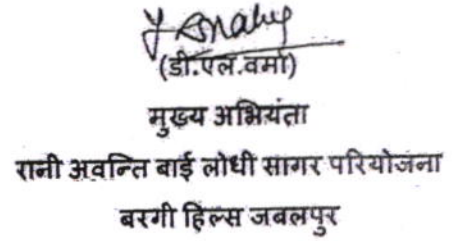 (डी.एल.वर्मा)
मुख्य अभियंता
रानी अवन्ति बाई लोधी सागर परियोजना
बरगी हिल्स जबलपुर